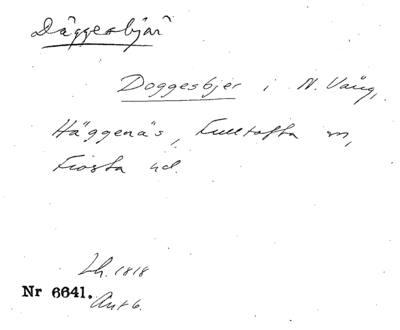 Däggesbjär
Doggesbjer i N. Vång,
Häggenäs, Fulltofta sn,
Frosta hd.
Lh. 1818
Nr 6641.
Ant 6.